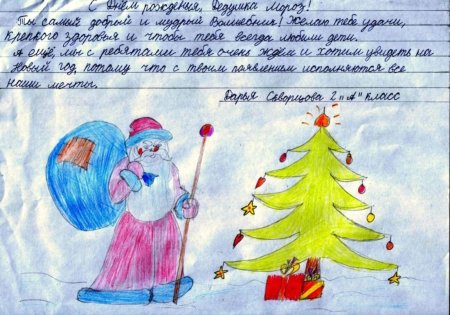 С Днём рождения, Дедушка Мороз!
Ты самый добрый и мудрый Волшебник! Желаю тебе удачи,
крепкого здоровья и чтобы тебя всегда любили дети.
А ещё, мы с ребятами тебя очень ждём и хотим увидеть на
Новый год, потому что с твоим появлением исполняются все
наши мечты.
Дарья Скворцова 2 "А" класс